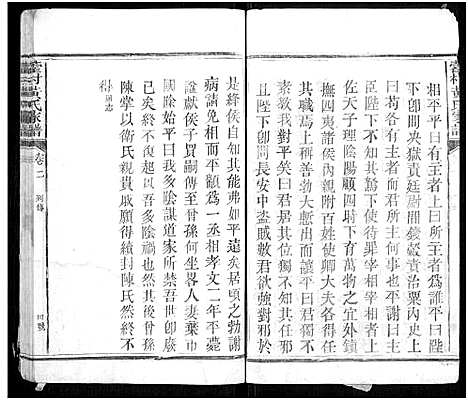 相平平曰有主者上曰主者爲誰平曰陛
下卽問決獄責廷尉問錢穀責治粟內史上
曰苟各有主者而君所主何事也平謝曰主
臣陛下不知其駑下使待罪宰相宰相者上
佐天子理陰陽順四時下育萬物之宜外鎮
撫四夷諸侯內親附百姓使卿大夫各得任
其職焉上稱善勃大慙出而讓平曰君獨不
素敎我平笑曰君居其位獨不知其任邪
且陛下卽問長安中盜賊數君欲强對邪於
是絳侯自知其能弗如平遠矣居頃之勃謝
病請免相平顓爲一丞相孝文二年平薨
諡獻侯子買嗣傳至曾孫何坐畧人妻棄巿
始平曰我多陰謀道家所禁吾世卽廢亦
已矣終不復起以吾多陰禍也其後曾孫
陳掌以衛氏親貴戚願得續封陳氏然終不
得
黃氏家譜
卷二
列傳